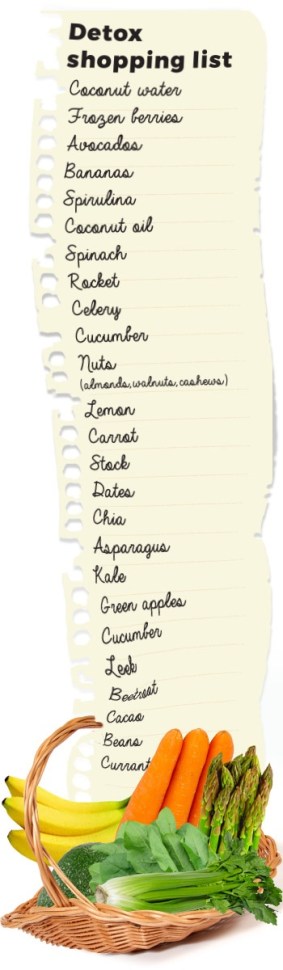 Detox
shopping list
Coconut water
Frozen berries
Avocados
Bananas
Spirulina
Coconut oil
Spinach
Rocket
Celery
Cucumber
Nuts
(almonds, walnuts, cashews)
Lemon
Carrot
Stock
Dates
Chia
Asparagus
Kale
Green apples
Cucumber
Leek
Beetroot
Cacao
Beans
Currant